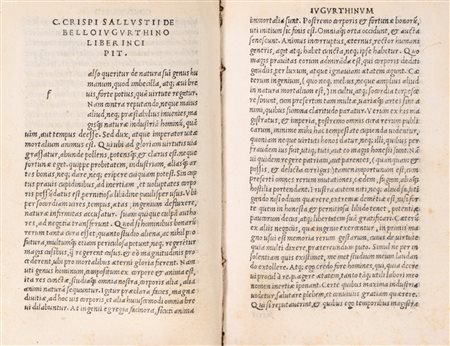 C. CRISPI SALLVSTII DE
BELLO IVGVRTHINO
LIBER INCI
PIT.
f
also queritur de natura sui genus hu
manum, quod imbecilla, atq; æui bre
uis, forte potius, quàm uirtute regatur.
Nam contra reputando, neque maius
aliud, neq; præstabilius inuenies, ma
gisq; naturæ industriā hominū, quā
uim, aut tempus deesse. Sed dux, atque imperator uitæ
mortalium animus est. Qui ubi ad gloriam uirtutis uia
grassatur, abunde pollens, potensq;, & clarus est. neque
fortuna eget. quippe probitatem, industriam, aliasq; ar
tes bonas, neq; dare, neq; eripere cuiquam potest. Sin cap
tus prauis cupidinibus, ad inertiam, et uoluptates corpo
ris pessundatus est perniciosa libidine paulisper usus. Vbi
per socordiam uires, tempus, ætas, ingenium defluxere,
naturæ infirmitas accusatur. suam quique culpā autho
res, ad negotia transferunt. Quod si hominibus bonarū
rerum tanta cura esset, quanto studio aliena, ac nihil pro
futura, multumq; etiam periculosa petunt, neq; regerētur
magis casibus, q̃ regerent casus. et eo magnitudinis pro
cederent, ubi pro mortalibus æterni gloria fierent. Nam
uti genus hominum, compositum ex corpore & anima est,
ita res cunctæ, studiaq; omnia nostra, alia, alia
animi naturā sequuntur. Igitur præclara facies, magnæ
diuitiæ, ad hoc uis corporis, et alia huiuscemodi omnia bre
ui dilabuntur. At ingenii egregia facinora, sicuti anima
IVGVRTHINVM
immortalia sunt. Postremo corporis et fortunæ bonorū,
uti initium sic finis est. Omniaq; orta occidunt, & aucta
senescunt. Animus incorruptus, æternus, rector humani
generis, agit, atq; habet cuncta, neq; ipse habetur. Quo
magis prauitas eorum admirāda est, qui corporis dediti
gaudiis, per luxum, atque ignauiam ætatem agunt. Cæte
rum ingenium, (quo neq; melius, neq; amplius aliud in na
tura mortalium est,) incultu, ac socordia torpe
scere sinunt, cum præsertim tam multæ, uariæq; sint artes animi,
quibus summa claritudo paratur. Verum ex his ma
gistratus, & imperia, postremo omnis cura rerum publi
carum, minime mihi hac tempestate cupienda uidentur,
quoniam neq; uirtuti honos datur, neq; illi, quibus per
fraudem ius fuit, utiq; tuti, aut eo magis honesti sunt. Nā
ui quidem regere patriam, aut parentes, (quanquam & possis,
& delicta corrigas) importunum est.
cum præsertim omnes rerum mutationes cædem, fugam, aliaq; hostilia
portendant. Frustra autem niti, neq; aliud se fati
gando nisi odium quærere, extremæ dementiæ est. nisi
forte quem inhonesta, & perniciosa libido tenet, potentiæ
paucorum decus, atq; libertatem suā gratificari. Cæterū
ex aliis negociis, quæ ingenio exercentur, in primis ma
gno usui est memoria rerum gestarum, cuius de uirtute
quia multi dixere, prætereundum puto. Simul ne per in
solentiam quis existimet, me met studium meum laudan
do extollere. Atq; ego credo fore homines, qui, quia decre
ui procul à re p. agere ætatem, tanto tam utiliq; labori meo
nomen inertiæ iponant. Certe quibus maxima industria
uidetur, salutare plebem, et conuiuiis gratiam quærere.
Qui si reputauerint, & quibus ego temporibus magistra